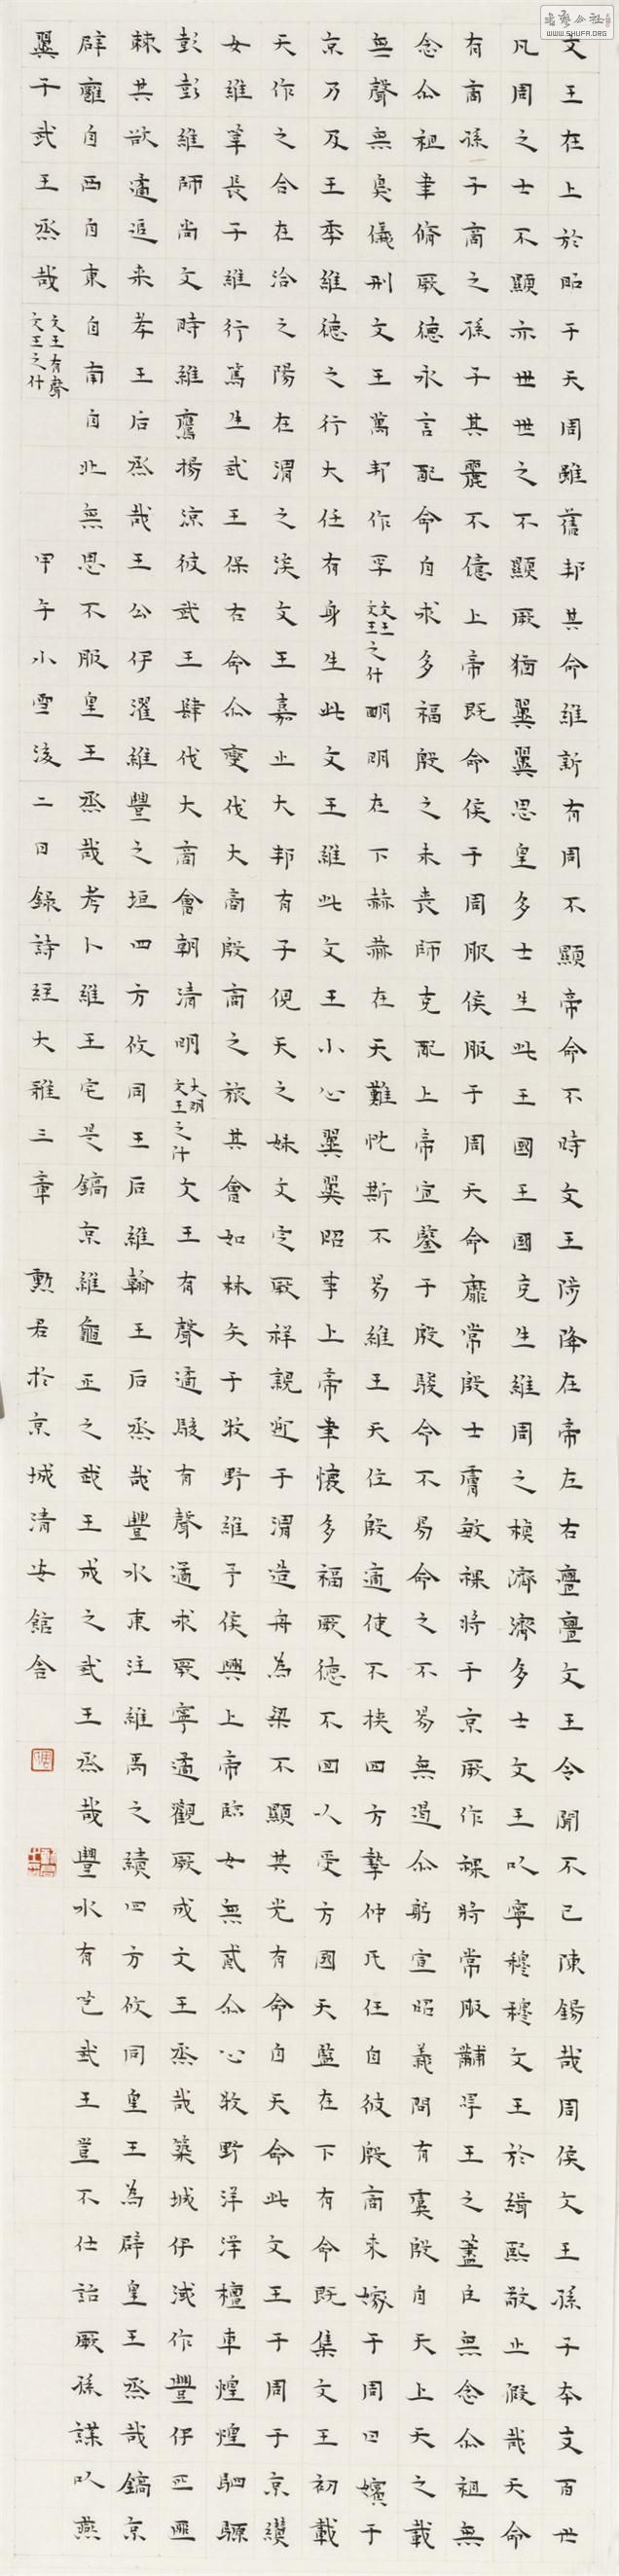 文王在上於昭于天周雖舊邦其命維新有周不顯帝命不時文王陟降在帝左右亹亹文王令聞不已陳錫哉周侯文王孫子本支百世
凡周之士不顯亦世世之不顯厥猶翼翼思皇多士生此王國王國克生維周之楨濟濟多士文王以寧穆穆文王於緝熙敬止假哉天命
有商孫子商之孫子其麗不億上帝既命侯于周服侯服于周天命靡常殷士膚敏祼將于京厥作祼將常服黼冔王之藎臣無念尒祖無
念尒祖聿脩厥德永言配命自求多福殷之未喪師克配上帝宜鑒于殷駿命不易命之不易無遏尒躬宣昭義問有虞殷自天上天之載
無聲無臭儀刑文王萬邦作孚 文王 文王之什 明明在下赫赫在天難忱斯不易維王天位殷適使不挾四方摯仲氏任自彼殷商來嫁于周曰嬪于
京乃及王季維德之行大任有身生此文王維此文王小心翼翼昭事上帝聿懷多福厥德不回以受方國天監在下有命既集文王初載
天作之合在洽之陽在渭之涘文王嘉止大邦有子俔天之妹文定厥祥親迎于渭造舟為梁不顯其光有命自天命此文王于周于京纘
女維莘長子維行篤生武王保右命尒燮伐大商殷商之旅其會如林矢于牧野維予侯興上帝臨女無貳尒心牧野洋洋檀車煌煌駟騵
彭彭維師尚父時維鷹揚涼彼武王肆伐大商會朝清明 大明 文王之什 文王有聲遹駿有聲遹求厥寧遹觀厥成文王烝哉築城伊淢作豐伊匹匪
棘其欲遹追來孝王后烝哉王公伊濯維豐之垣四方攸同王后維翰王后烝哉豐水東注維禹之績四方攸同皇王為辟皇王烝哉鎬京
辟廱自西自東自南自北無思不服皇王烝哉考卜維王宅是鎬京維龜正之武王成之武王烝哉豐水有芑武王豈不仕詒厥孫謀以燕
翼子武王烝哉 文王有聲 文王之什 甲午小雪後二日錄詩經大雅三章 勳君於京城清安館舍
WWW.SHUFA.ORG